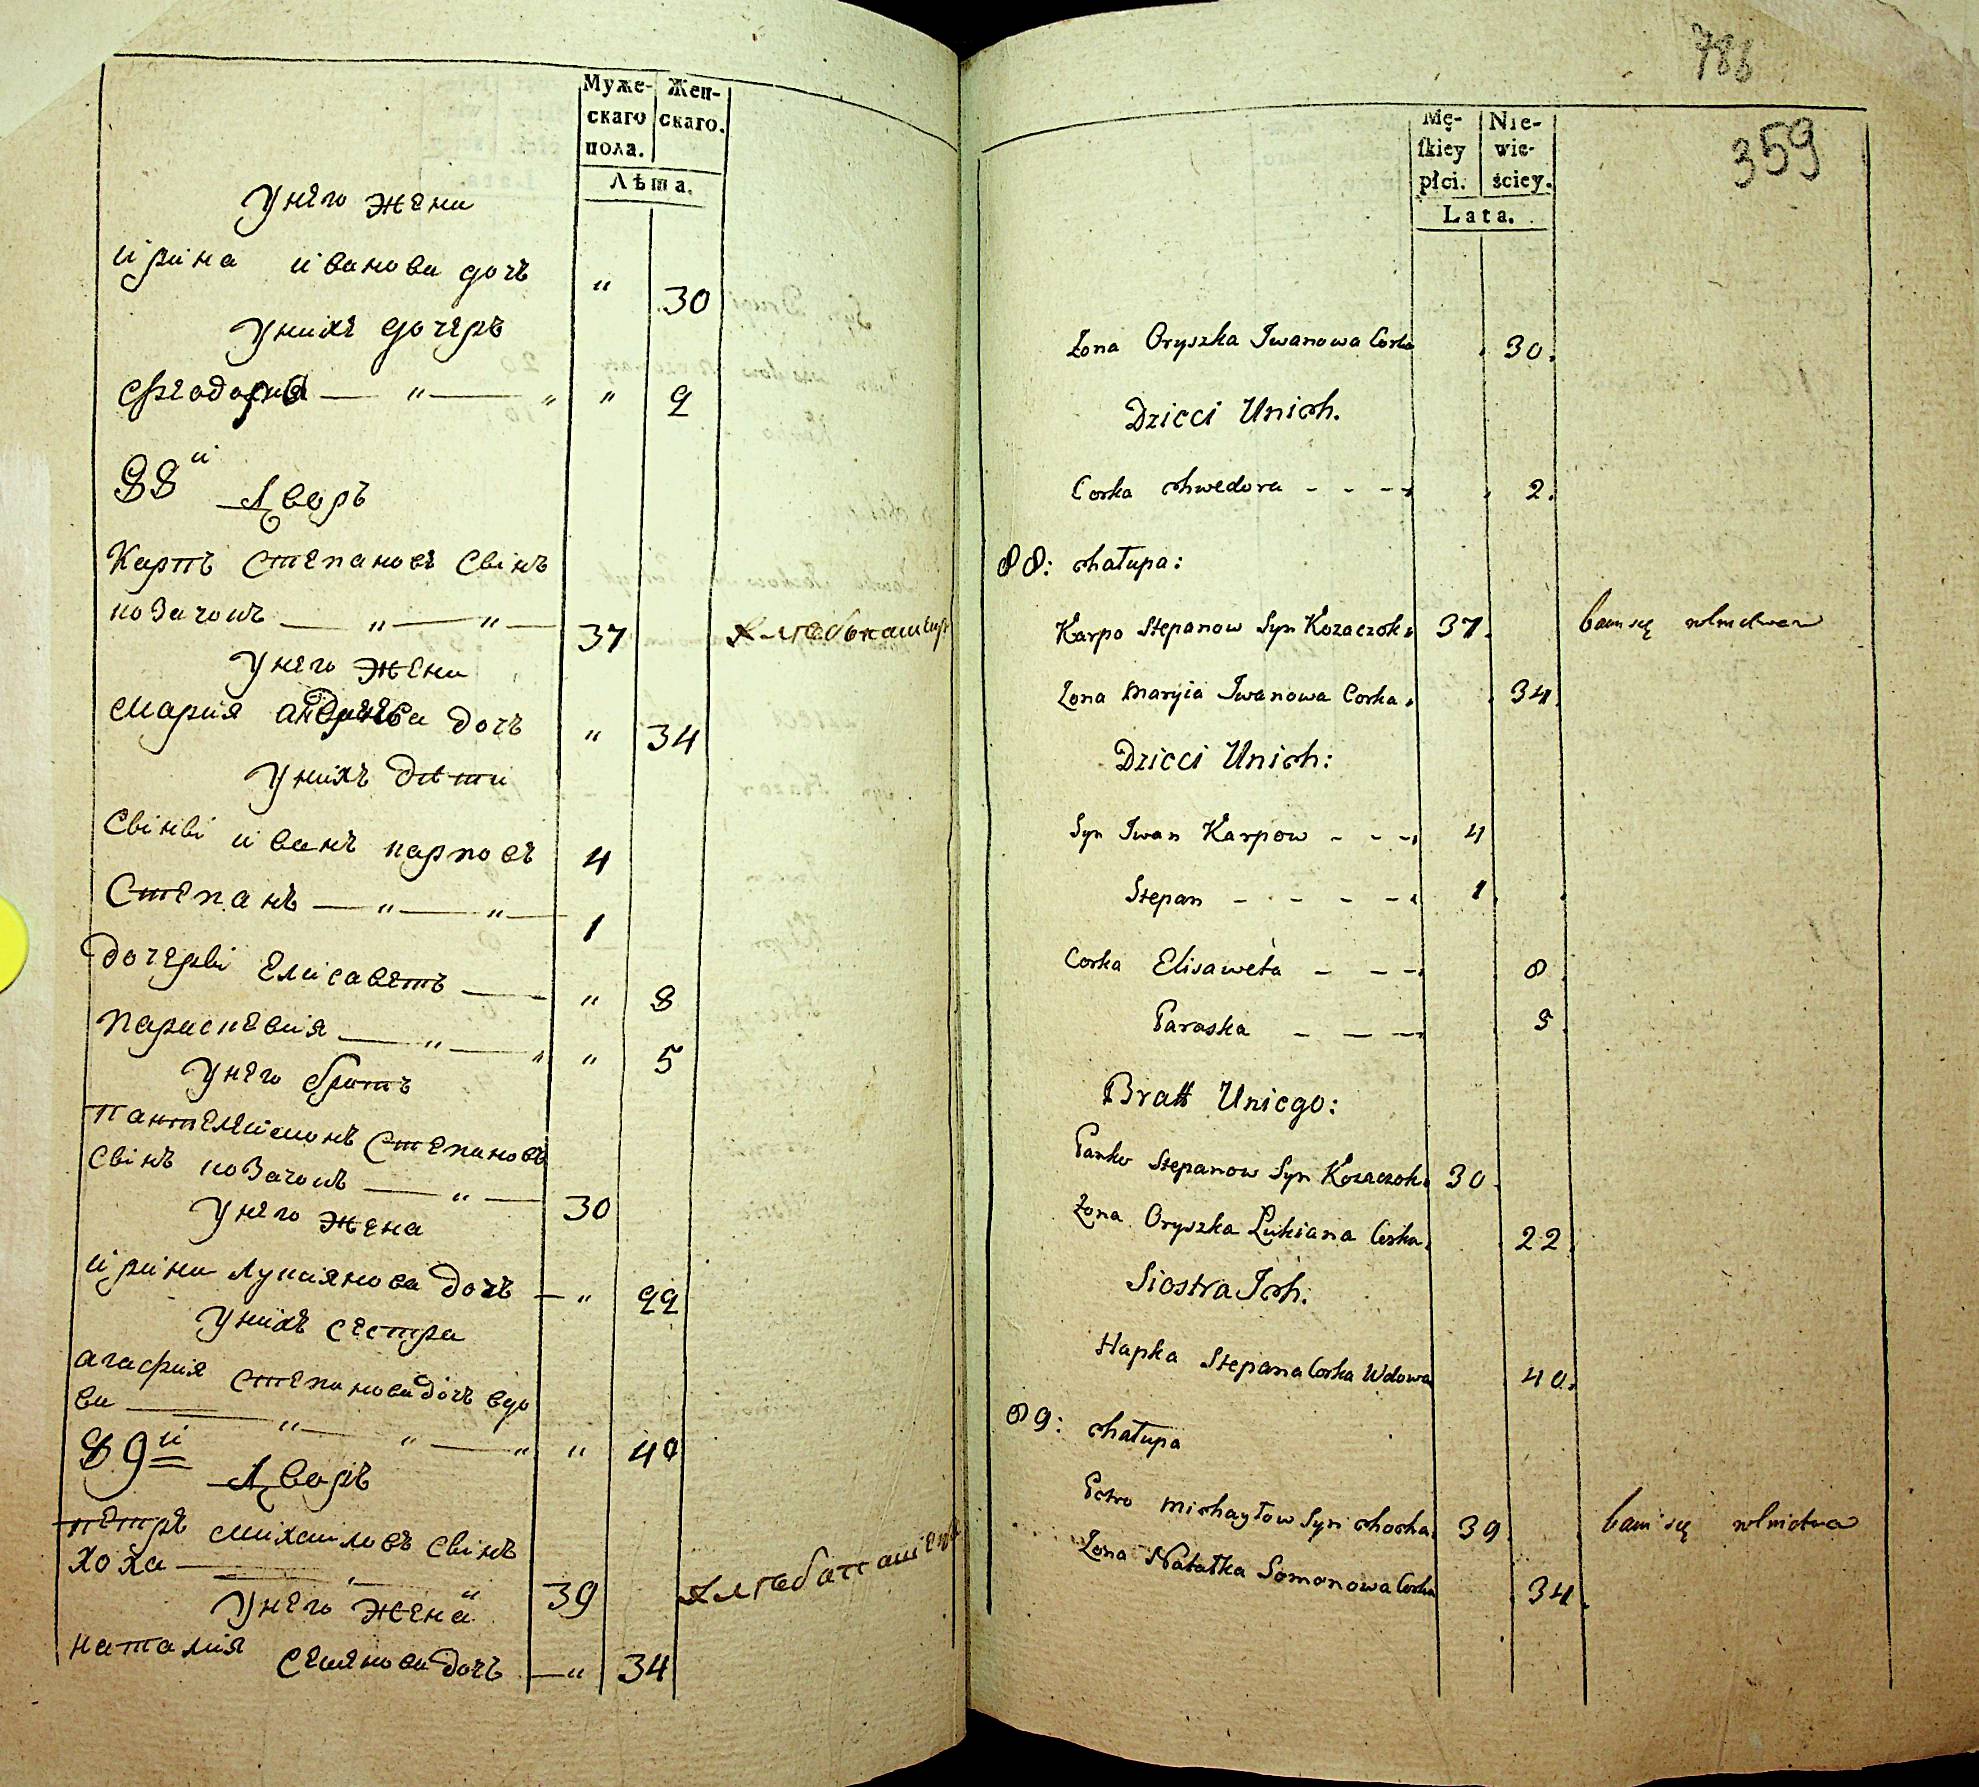 Муже-
скаго
пола.
Жен-
скаго.
Лѣта.
У него жена
ирина иванова дочъ " 30
У нихъ дочеръ
Феодорiя — " — " " 2
88й Дворъ
Карпъ Степановъ Сынъ
козачокъ — " — " — 37
У него жена
Мария андрѣева дочъ " 34
У нихъ дѣти
Сыны иванъ карповъ 4
Степанъ — " — " — 1
дочеры Елисаветъ — " 8
параскевия — " — " " 5
У него братъ
пантелеимонъ Степановъ
Сынъ козачокъ — " — 30
У него жена
ирина лукиянова дочъ — " 22
У нихъ сестра
агафия Степанова дочъ вдо
ва — " — " — " " 40
89й Дворъ
петръ михаиловъ Сынъ
хоха — " — " 39
У него жена
наталия Семянова дочъ — " 34
788
359
Mę-
ſkiey
płci.
Nie-
wie-
ściey.
Lata.
Żona Oryszka Iwanowa Corka 30.
Dzieci Unich.
Corka chwedora - - - 2.
88: chałupa:
Karpo Stepanow Syn Kozaczok 37. bawi się rolnictwem
Żona Maryia Iwanowa Corka 34.
Dzieci Unich:
Syn Iwan Karpow - - - 4
Stepan - - - - 1.
Corka Elisaweta - - - 8.
Paraska - - - 5.
Bratt Uniego:
Panko Stepanow Syn Kozaczok 30.
Żona Oryszka Lukiana Corka 22.
Siostra Ich.
Hapka Stepana Corka Wdowa 40.
89: chałupa
Petro Michayłow Syn chocha. 39. bawi się rolnictwem
Żona Natałka Somonowa Corka 34.